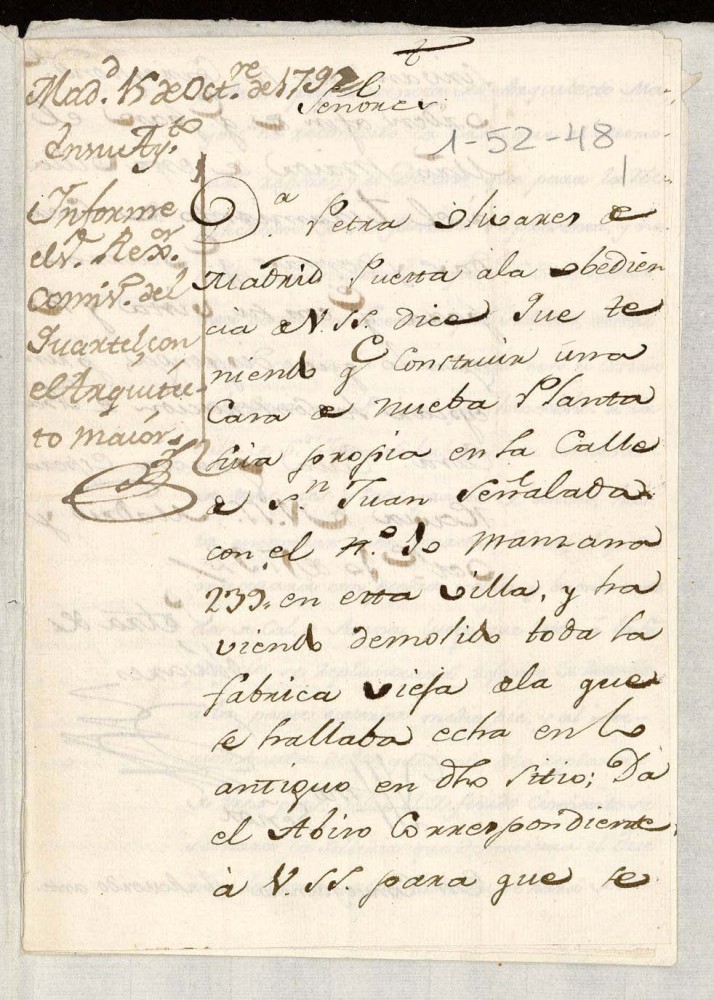 Mad.d 15 de Oct.re de 179
En su Ay.to
Informe
el S.r Rex.or
Comis.o del
Quartel, con
el Arquitec-
to maior
Señores
1-52-48
D.a Petra Olivares de
Madrid Puesta a la obedien
cia de V.SS. dice Que te
niendo q.e Construir una
Casa de nueba Planta
suia propia en la Calle
de S.n Juan Señalada
con el n.o 10 Manzana
239. en esta Villa, y ha
viendo demolido toda la
fabrica vieja de la que
se hallaba echa en lo
antiguo en dho sitio; Da
el Abiso Correspondiente
à V.SS. para que se